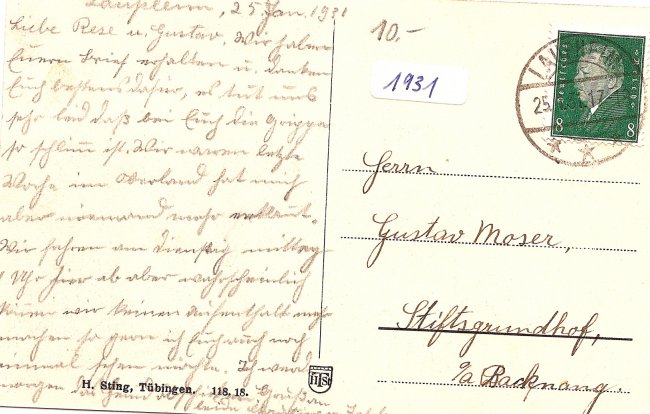 Laupheim, 25. Jan. 1931
Liebe Rese u. Gustav. Wir haben
Euern Brief erhalten u. danken
Euch bestens dafür, es tut uns
sehr leid daß bei Euch die Grippe
so schlimm ist. Wir waren letzte
Woche im Oberland hat mich
aber niemand mehr
Wir fahren am Dienstag mittag
1 Uhr hier ab aber wahrscheinlich
können wir keinen Aufenthalt mehr
machen so gern ich Euch auch noch
einmal sehen möchte. Ich
morgen Abend
H. Sting, Tübingen. 118, 18.
10.-
1931
Deutsches Reich
8 8
LAUPHEIM
25.
17
Herrn
Gustav Moser,
Stiftsgrundhof,
b/a Backnang.
HST